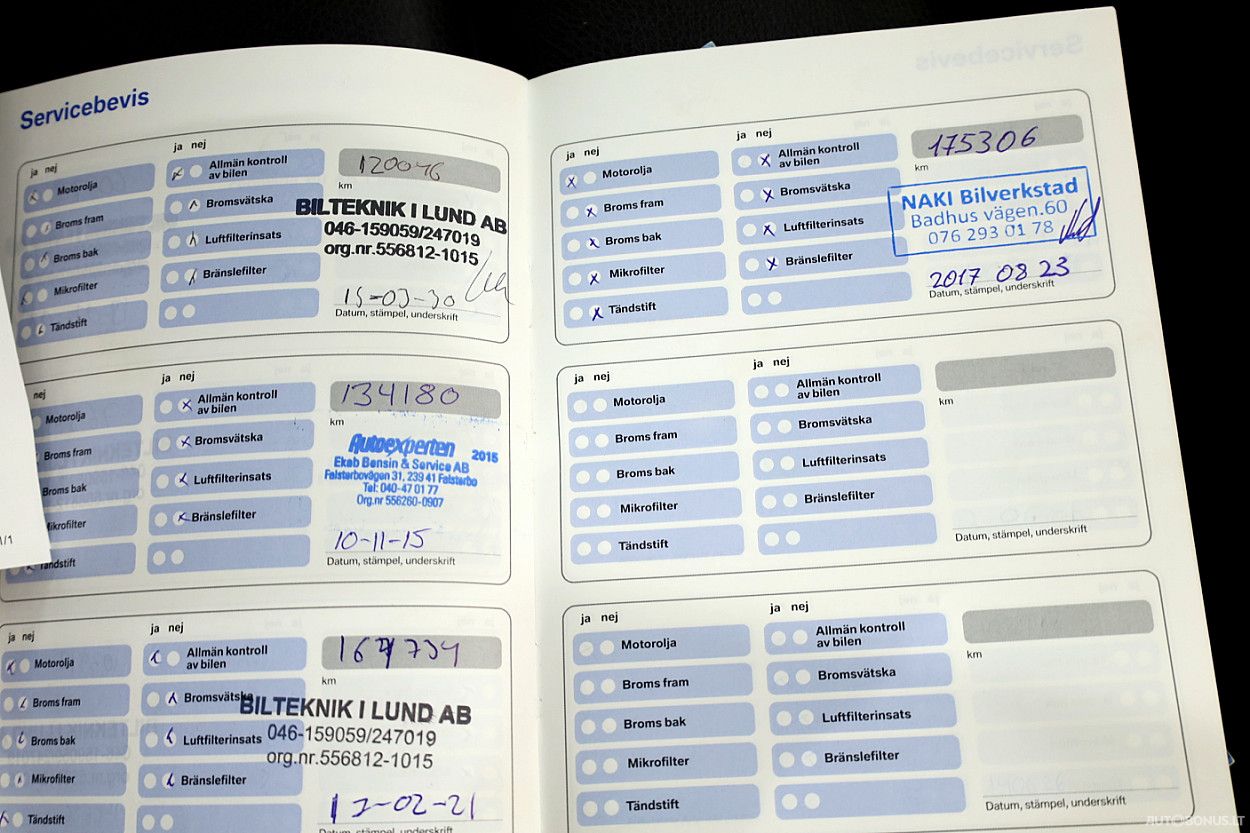 Servicebevis
ja nej
ja nej
Motorolja
Broms fram
Broms bak
Mikrofilter
Tändstift
Allmän kontroll
av bilen
Bromsvätska
Luftfilterinsats
Bränslefilter
120046
km
BILTEKNIK I LUND AB
046-159059/247019
org.nr.556812-1015
15-03-30
Datum, stämpel, underskrift
nej
ja nej
Motorolja
Broms fram
Broms bak
Mikrofilter
Tändstift
Allmän kontroll
av bilen
Bromsvätska
Luftfilterinsats
Bränslefilter
134180
km
Autoexperten 2015
Ekab Bensin & Service AB
Falsterbovägen 31, 239 41 Falsterbo
Tel: 040-47 01 77
Org.nr 556260-0907
10-11-15
Datum, stämpel, underskrift
1/1
ja nej
ja nej
Motorolja
Broms fram
Broms bak
Mikrofilter
Tändstift
Allmän kontroll
av bilen
Bromsvätska
Luftfilterinsats
Bränslefilter
km
BILTEKNIK I LUND AB
046-159059/247019
org.nr.556812-1015
17-02-21
Datum, stämpel, underskrift
ja nej
ja nej
Motorolja
Broms fram
Broms bak
Mikrofilter
Tändstift
Allmän kontroll
av bilen
Bromsvätska
Luftfilterinsats
Bränslefilter
175306
km
NAKI Bilverkstad
Badhus vägen.60
076 293 01 78
2017 08 23
Datum, stämpel, underskrift
ja nej
ja nej
Motorolja
Broms fram
Broms bak
Mikrofilter
Tändstift
Allmän kontroll
av bilen
Bromsvätska
Luftfilterinsats
Bränslefilter
km
Datum, stämpel, underskrift
ja nej
ja nej
Motorolja
Broms fram
Broms bak
Mikrofilter
Tändstift
Allmän kontroll
av bilen
Bromsvätska
Luftfilterinsats
Bränslefilter
km
Datum, stämpel, underskrift
AUTOBONUS.LT